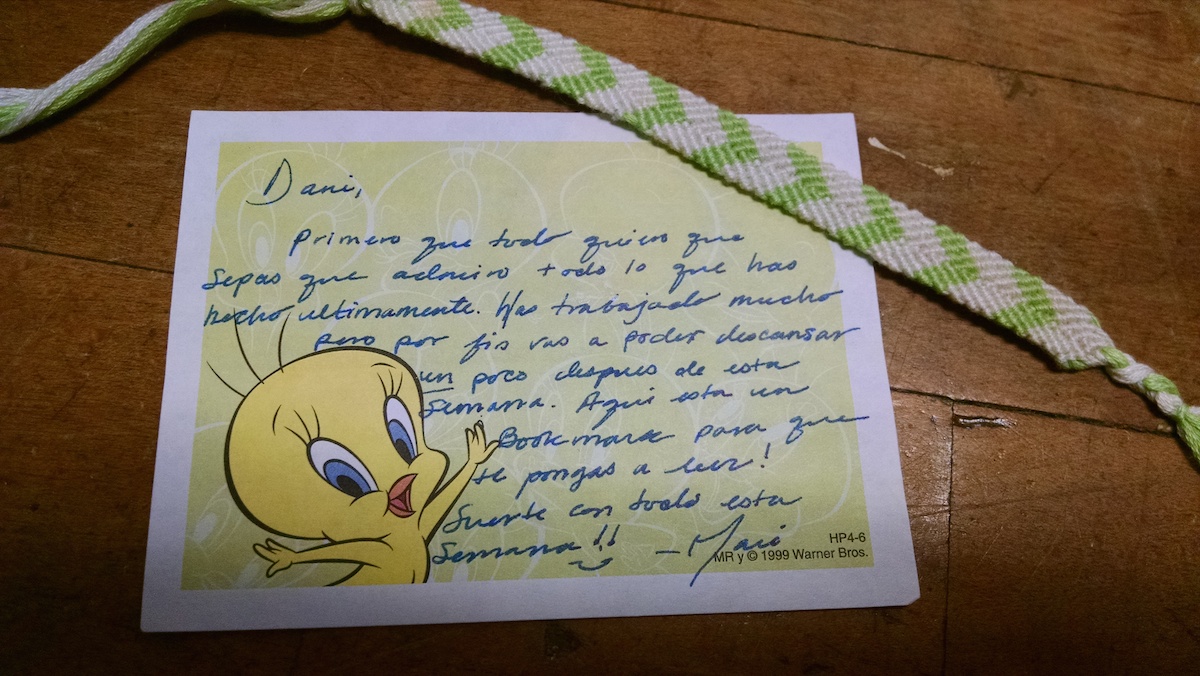 Dani,
Primero que todo quiero que
sepas que admiro todo lo que has
hecho ultimamente. Has trabajado mucho
pero por fin vas a poder descansar
un poco despues de esta
semana. Aqui esta un
Bookmark para que
te pongas a leer!
Suerte con todo esta
semana!!
- Mari
HP4-6
MR y © 1999 Warner Bros.